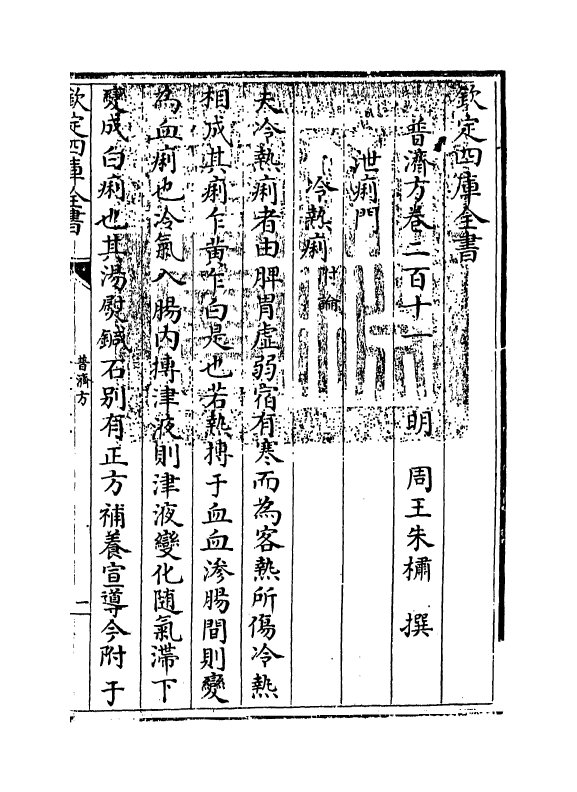 欽定四庫全書
普濟方卷二百十一　明　周王朱橚　撰
泄痢門
冷熱痢附論
夫冷熱痢者由脾胃虛弱宿有寒而為客熱所傷冷熱
相成其痢乍黄乍白是也若熱搏于血血滲腸間則變
為血痢也冷氣入腸内搏津液則津液變化随氣滯下
變成白痢也其湯熨鍼石别有正方補養宣導今附于
欽定四庫全書
普濟方
一